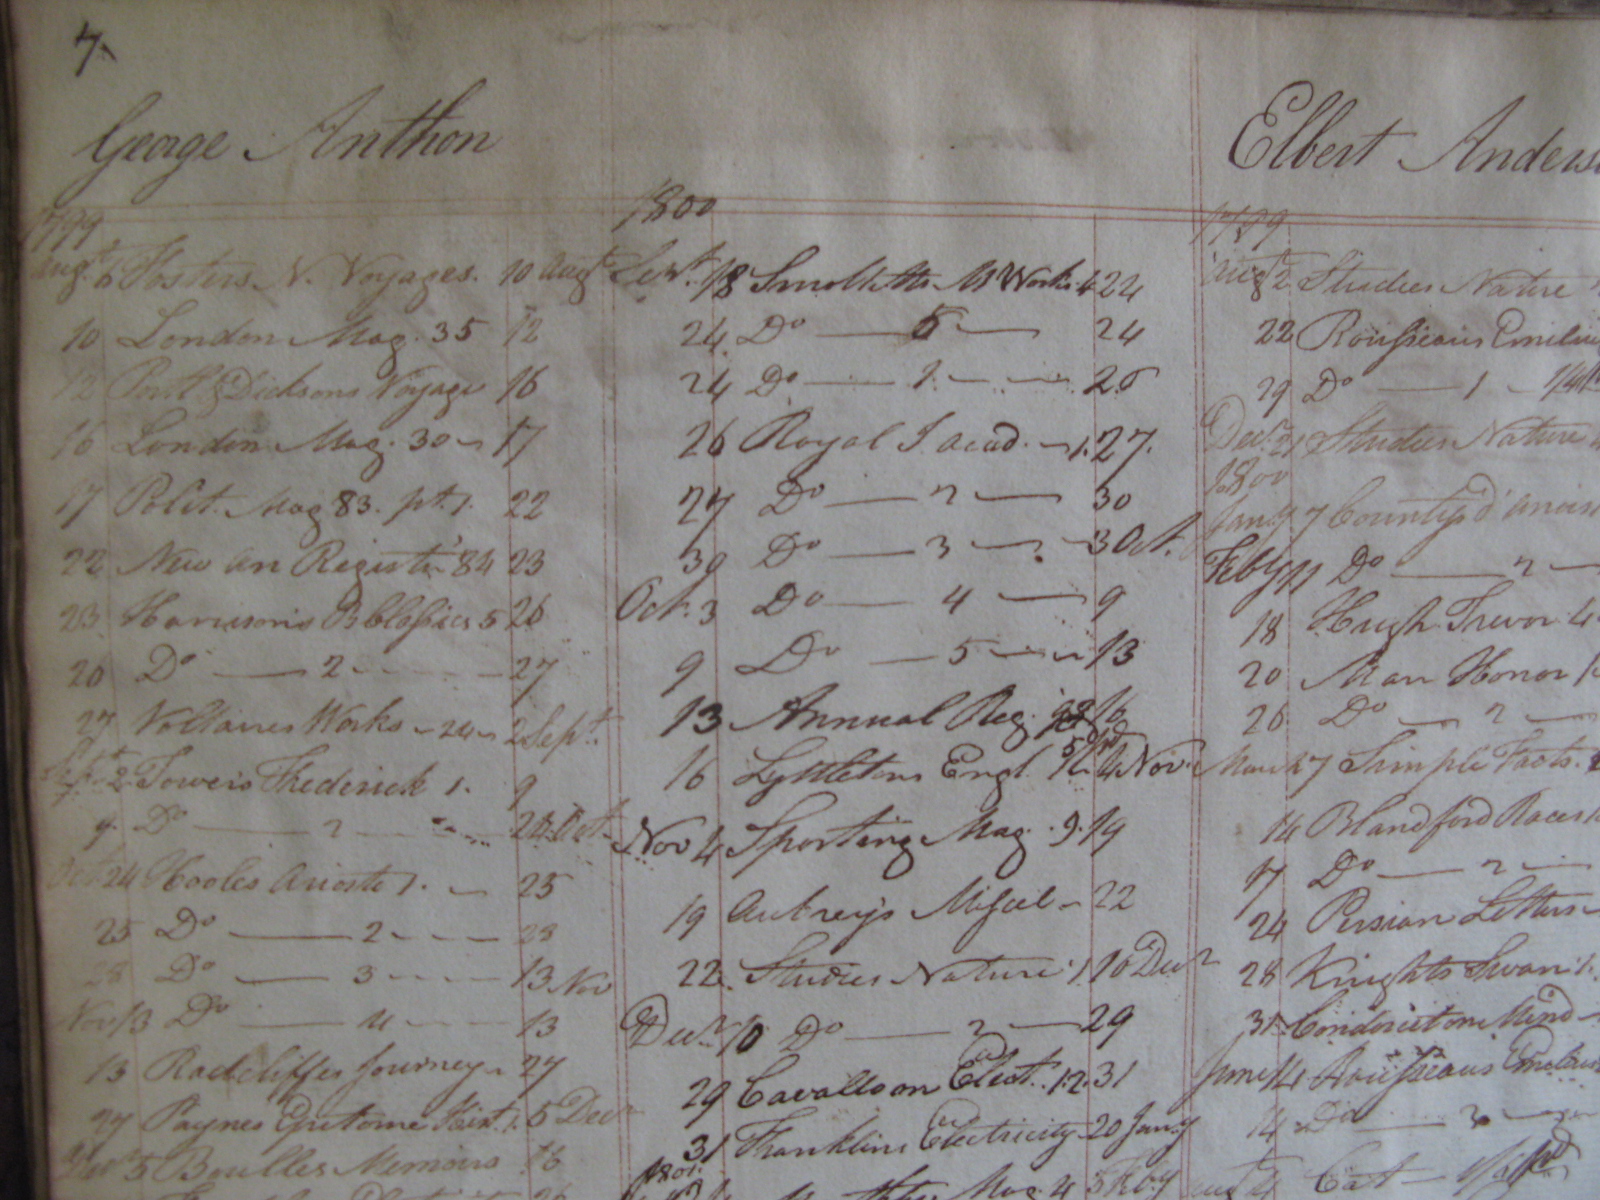 7
George Anthon
1799
Augt. 6 Fosters N. Voyages. 10 Augt
10 London Mag. 35 12
12 Portl & Dicksons Voyage 16
16 London Mag. 30 17
17 Polit. Mag 83. pt. 1. 22
22 New An Registr '84 23
23 Harrisons B Classics 5 26
26 Do 2 27
27 Voltaires Works 24 2 Sept.
Sept 2 Towers Frederick 1. 9
9 Do 2 24 Oct
Oct 24 Hooles Ariosto 1. 25
25 Do 2 28
28 Do 3 13 Nov
Nov 13 Do 4 13
13 Radcliffes Journey 27
27 Paynes Epitome Hist. 1. 5 Decr
Decr 5 Bouilles Memoirs 16
1800
Sept. 18 Smolletts M Works 4 22
24 Do 5 24
24 Do 1 26
26 Royal I. acad. 1. 27.
27 Do 2 30
30 Do 3 3 Oct.
Oct. 3 Do 4 9
9 Do 5 13
13 Annual Reg. 16
16 Lyttletons Engl. 4 Nov.
Nov 4 Sporting Mag. 9. 19
19 Aubreys Miscel 22
22. Studies Nature 1 10 Decr
Decr 10 Do 2 29
29 Cavallo on Elect. 1.2. 31
31 Franklins Electricity 20 Jany
1801.
Mag. 4 5 Feby
Elbert Anders
1799
Augt 2 Studies Nature
22 Rousseaus Emilius
29 Do 1
Decr. 21 Studies Nature
1800
Jany 7 County
Feby 11 Do 2
18 Hugh Trevor 4
20 Man Honor 1
26 Do 2
March 7 Simple Facts.
14 Blandford Races 1
17 Do 2
24 Persian Letters
28 Knights Swan 1.
31 Condorcet on Mind
June 14 Rousseaus Emelius
14 Do 3
Augt 4 Cast